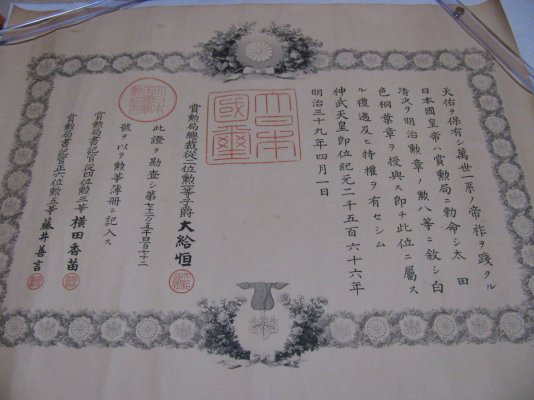 天佑ヲ保有シ萬世一系ノ帝祚ヲ踐タル
日本國皇帝ハ賞勲局ニ勅命シ太田
清次ヲ明治勲章ノ勲八等ニ敘シ白
色桐葉章ヲ授與ス即チ此位ニ屬ス
ル禮遇及ヒ特權ヲ有セシム
神武天皇即位紀元二千五百六十六年
明治三十九年四月一日
大日本國璽
賞勲局總裁從二位勲一等子爵大給恒
此證ヲ勘査シ第七十六万五千四百七十二
號ヲ以テ勲等簿册ニ記入ス
賞勲局書記官從四位勲三等横田香苗
賞勲局書記官正六位勲五等藤井善言